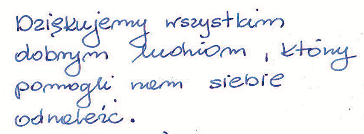 Dziękujemy wszystkim
dobrym ludziom, którzy
pomogli nam siebie
odnaleźć.